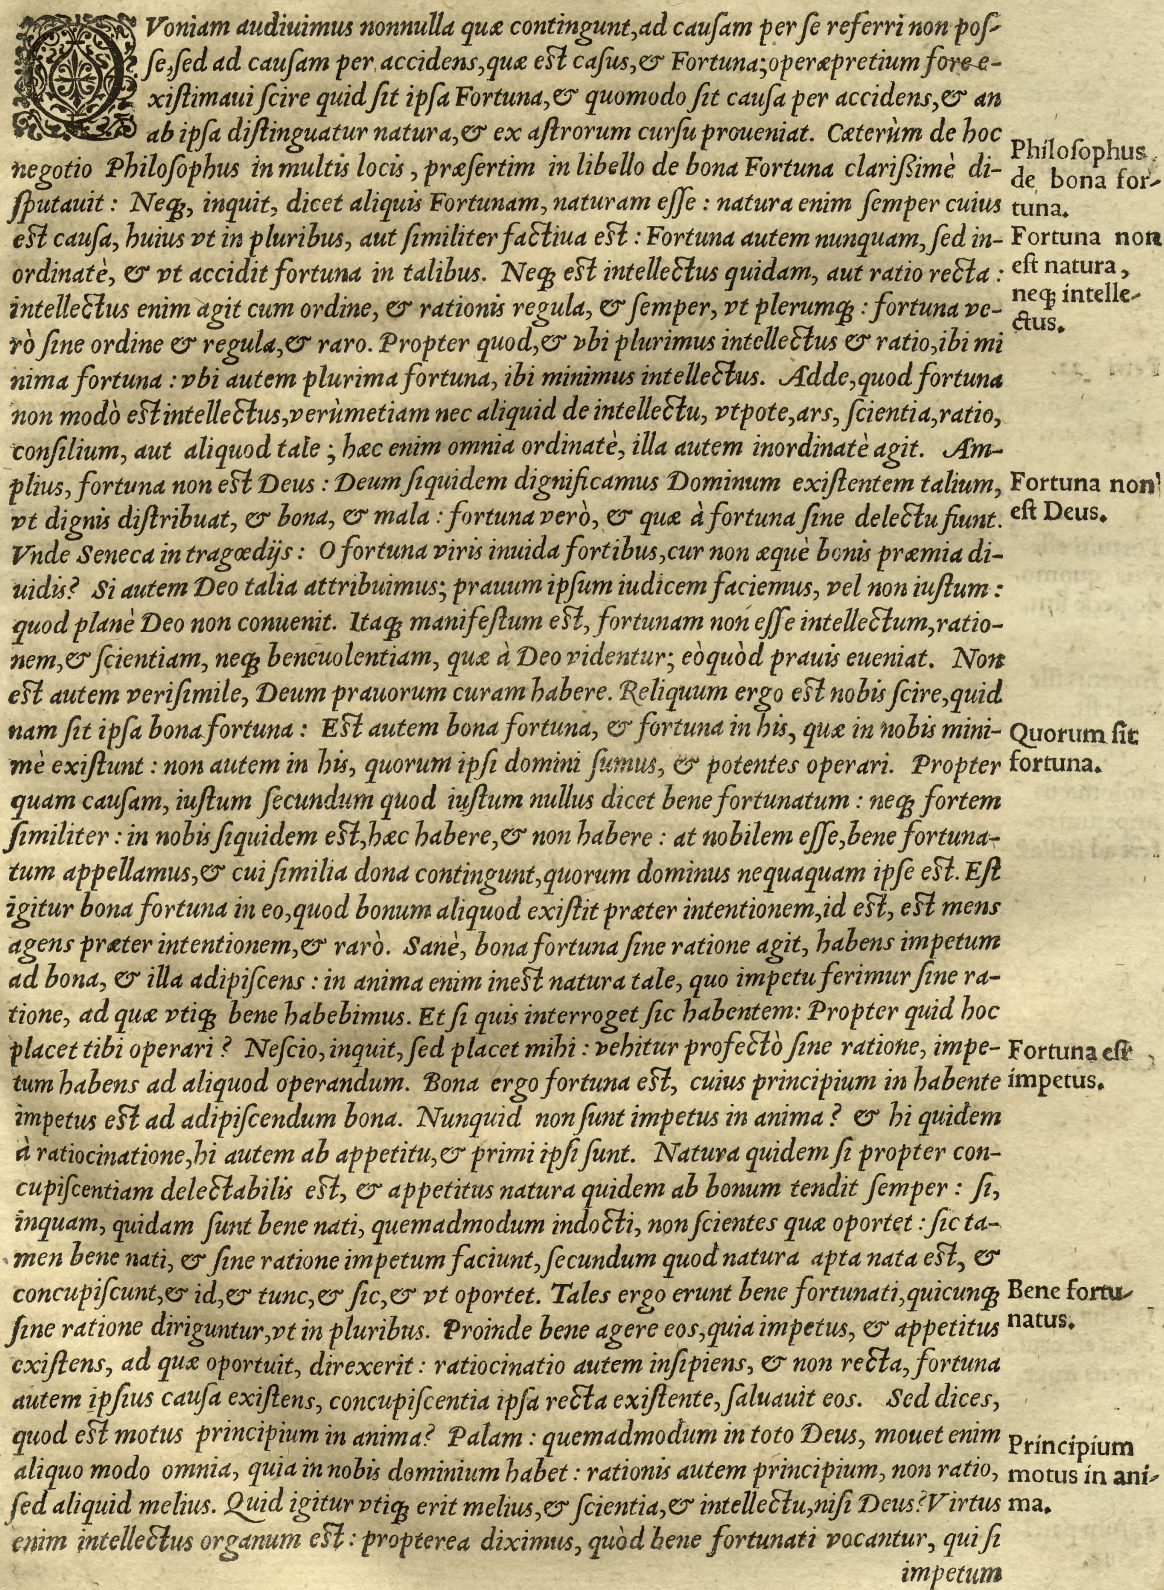 QVoniam audiuimus nonnulla quæ contingunt, ad cauſam per ſe referri non poſ-
ſe, ſed ad cauſam per accidens, quæ eſt caſus, & Fortuna; operæpretium fore e-
xiſtimaui ſcire quid ſit ipſa Fortuna, & quomodo ſit cauſa per accidens, & an
ab ipſa diſtinguatur natura, & ex aſtrorum curſu proueniat. Cæterùm de hoc
negotio Philoſophus in multis locis, præſertim in libello de bona Fortuna clariſsimè di-
ſputauit: Neq;, inquit, dicet aliquis Fortunam, naturam eſſe: natura enim ſemper cuius
eſt cauſa, huius vt in pluribus, aut ſimiliter factiua eſt: Fortuna autem nunquam, ſed in-
ordinatè, & vt accidit fortuna in talibus. Neq; eſt intellectus quidam, aut ratio recta:
intellectus enim agit cum ordine, & rationis regula, & ſemper, vt plerumq;: fortuna ve-
rò ſine ordine & regula, & raro. Propter quod, & vbi plurimus intellectus & ratio, ibi mi
nima fortuna: vbi autem plurima fortuna, ibi minimus intellectus. Adde, quod fortuna
non modò eſt intellectus, verùmetiam nec aliquid de intellectu, vtpote, ars, ſcientia, ratio,
conſilium, aut aliquod tale; hæc enim omnia ordinatè, illa autem inordinatè agit. Am-
plius, fortuna non eſt Deus: Deum ſiquidem dignificamus Dominum exiſtentem talium,
vt dignis diſtribuat, & bona, & mala: fortuna verò, & quæ à fortuna ſine delectu fiunt.
Vnde Seneca in tragœdijs: O fortuna viris inuida fortibus, cur non æquè bonis præmia di-
uidis? Si autem Deo talia attribuimus; prauum ipſum iudicem faciemus, vel non iuſtum:
quod planè Deo non conuenit. Itaq; manifeſtum eſt, fortunam non eſſe intellectum, ratio-
nem, & ſcientiam, neq; beneuolentiam, quæ à Deo videntur; eòquòd prauis eueniat. Non
eſt autem veriſimile, Deum prauorum curam habere. Reliquum ergo eſt nobis ſcire, quid
nam ſit ipſa bona fortuna: Eſt autem bona fortuna, & fortuna in his, quæ in nobis mini-
mè exiſtunt: non autem in his, quorum ipſi domini ſumus, & potentes operari. Propter
quam cauſam, iuſtum ſecundum quod iuſtum nullus dicet bene fortunatum: neq; fortem
ſimiliter: in nobis ſiquidem eſt, hæc habere, & non habere: at nobilem eſſe, bene fortuna-
tum appellamus, & cui ſimilia dona contingunt, quorum dominus nequaquam ipſe eſt. Eſt
igitur bona fortuna in eo, quod bonum aliquod exiſtit præter intentionem, id eſt, eſt mens
agens præter intentionem, & rarò. Sanè, bona fortuna ſine ratione agit, habens impetum
ad bona, & illa adipiſcens: in anima enim ineſt natura tale, quo impetu ferimur ſine ra-
tione, ad quæ vtiq; bene habebimus. Et ſi quis interroget ſic habentem: Propter quid hoc
placet tibi operari? Neſcio, inquit, ſed placet mihi: vehitur profectò ſine ratione, impe-
tum habens ad aliquod operandum. Bona ergo fortuna eſt, cuius principium in habente
impetus eſt ad adipiſcendum bona. Nunquid non ſunt impetus in anima? & hi quidem
à ratiocinatione, hi autem ab appetitu, & primi ipſi ſunt. Natura quidem ſi propter con-
cupiſcentiam delectabilis eſt, & appetitus natura quidem ab bonum tendit ſemper: ſi,
inquam, quidam ſunt bene nati, quemadmodum indocti, non ſcientes quæ oportet: ſic ta-
men bene nati, & ſine ratione impetum faciunt, ſecundum quod natura apta nata eſt, &
concupiſcunt, & id, & tunc, & ſic, & vt oportet. Tales ergo erunt bene fortunati, quicunq;
ſine ratione diriguntur, vt in pluribus. Proinde bene agere eos, quia impetus, & appetitus
exiſtens, ad quæ oportuit, direxerit: ratiocinatio autem inſipiens, & non recta, fortuna
autem ipſius cauſa exiſtens, concupiſcentia ipſa recta exiſtente, ſaluauit eos. Sed dices,
quod eſt motus principium in anima? Palam: quemadmodum in toto Deus, mouet enim
aliquo modo omnia, quia in nobis dominium habet: rationis autem principium, non ratio,
ſed aliquid melius. Quid igitur vtiq; erit melius, & ſcientia, & intellectu, niſi Deus? Virtus
enim intellectus organum eſt: propterea diximus, quòd bene fortunati vocantur, qui ſi
impetum
Philoſophus
de bona for-
tuna.
Fortuna non
eſt natura,
neq; intelle-
ctus.
Fortuna non
eſt Deus.
Quorum ſit
fortuna.
Fortuna eſt
impetus.
Bene fortu-
natus.
Principium
motus in ani-
ma.